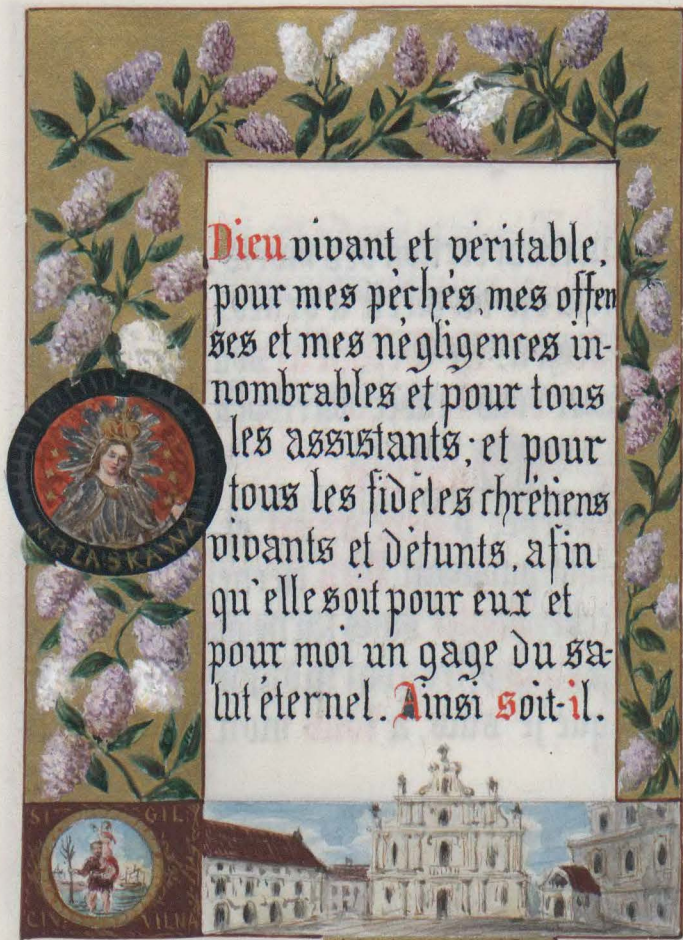 Dieu vivant et véritable,
pour mes pèchés, mes offen
ses et mes négligences in-
nombrables et pour tous
les assistants; et pour
tous les fidèles chrétiens
vivants et défunts, afin
qu'elle soit pour eux et
pour moi un gage du sa-
lut éternel. Ainsi soit-il.
M.P. ŁASKAWA
SI GILL
CIVI VILNA